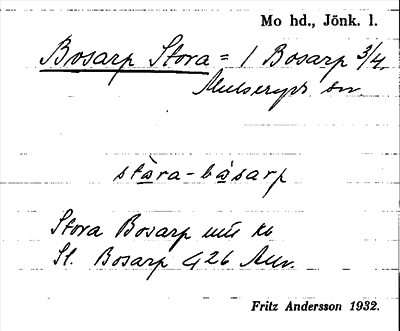 Mo hd., Jönk. l.
Bosarp Stora = 1 Bosarp 3/4.
Mulseryds sn
stàra-bàsarp
Stora Bosarp
St. Bosarp 426
Fritz Andersson 1932.